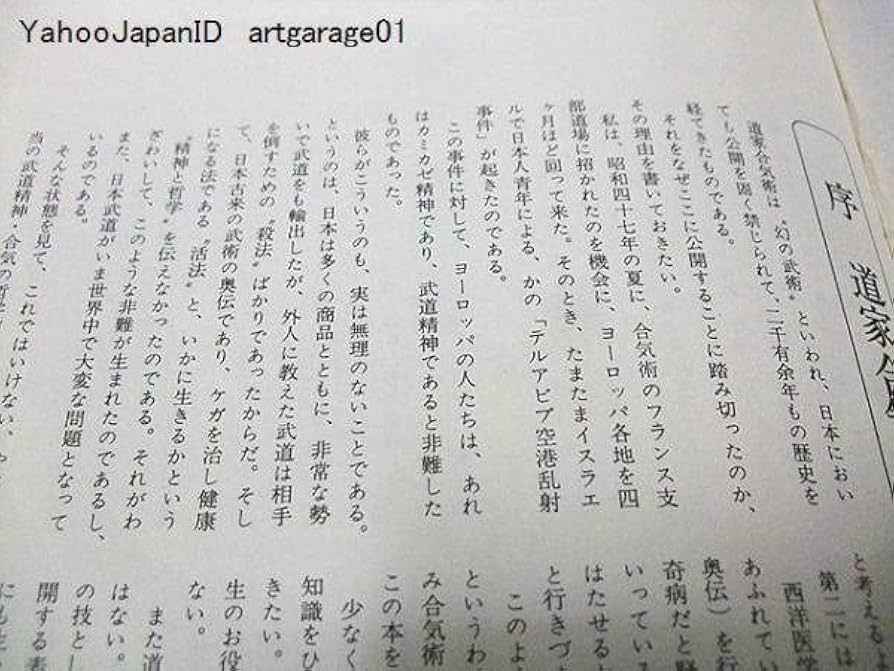 YahooJapanID artgarage01
序 道家合気
道家合気術は〝幻の武術〟といわれ、日本におい
ても公開を固く禁じられて、二千有余年もの歴史を
経てきたものである。
それをなぜここに公開することに踏み切ったのか、
その理由を書いておきたい。
私は、昭和四十七年の夏に、合気術のフランス支
部道場に招かれたのを機会に、ヨーロッパ各地を四
ヶ月ほど回って来た。そのとき、たまたまイスラエ
ルで日本人青年による、かの「テルアビブ空港乱射
事件」が起きたのである。
この事件に対して、ヨーロッパの人たちは、あれ
はカミカゼ精神であり、武道精神であると非難した
ものであった。
彼らがこういうのも、実は無理のないことである。
というのは、日本は多くの商品とともに、非常な勢
いで武道をも輸出したが、外人に教えた武道は相手
を倒すための〝殺法〟ばかりであったからだ。そし
て、日本古来の武術の奥伝であり、ケガを治し健康
になる法である〝活法〟と、いかに生きるかという
〝精神と哲学〟を伝えなかったのである。それがわ
ざわいして、このような非難が生まれたのであるし、
また、日本武道がいま世界中で大変な問題となって
いるのである。
そんな状態を見て、これではいけない、
当の武道精神・合気の哲学
と考える
第二には
西洋医
あふれて
奥伝）を行
奇病だと
いっている
はたせる
と行きづ
このよ
というわ
み合気術
この本を
少なく
知識をひ
きたい。
生のお役
ない。
また道
はない。
の技とし
開する素
にも